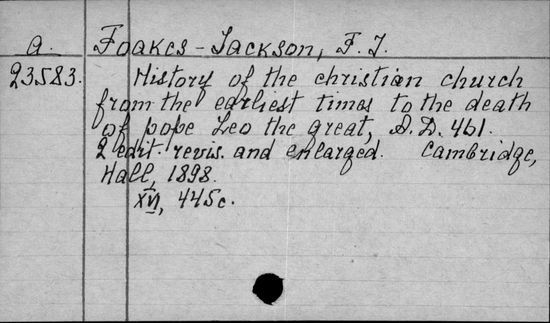 a. Foakes-Jackson, F. J.
23583. History of the christian church
from the earliest times to the death
of pope Leo the great, A.D. 461.
2 edit. revis. and enlarged. Cambridge,
Hall, 1898.
XVI, 445c.